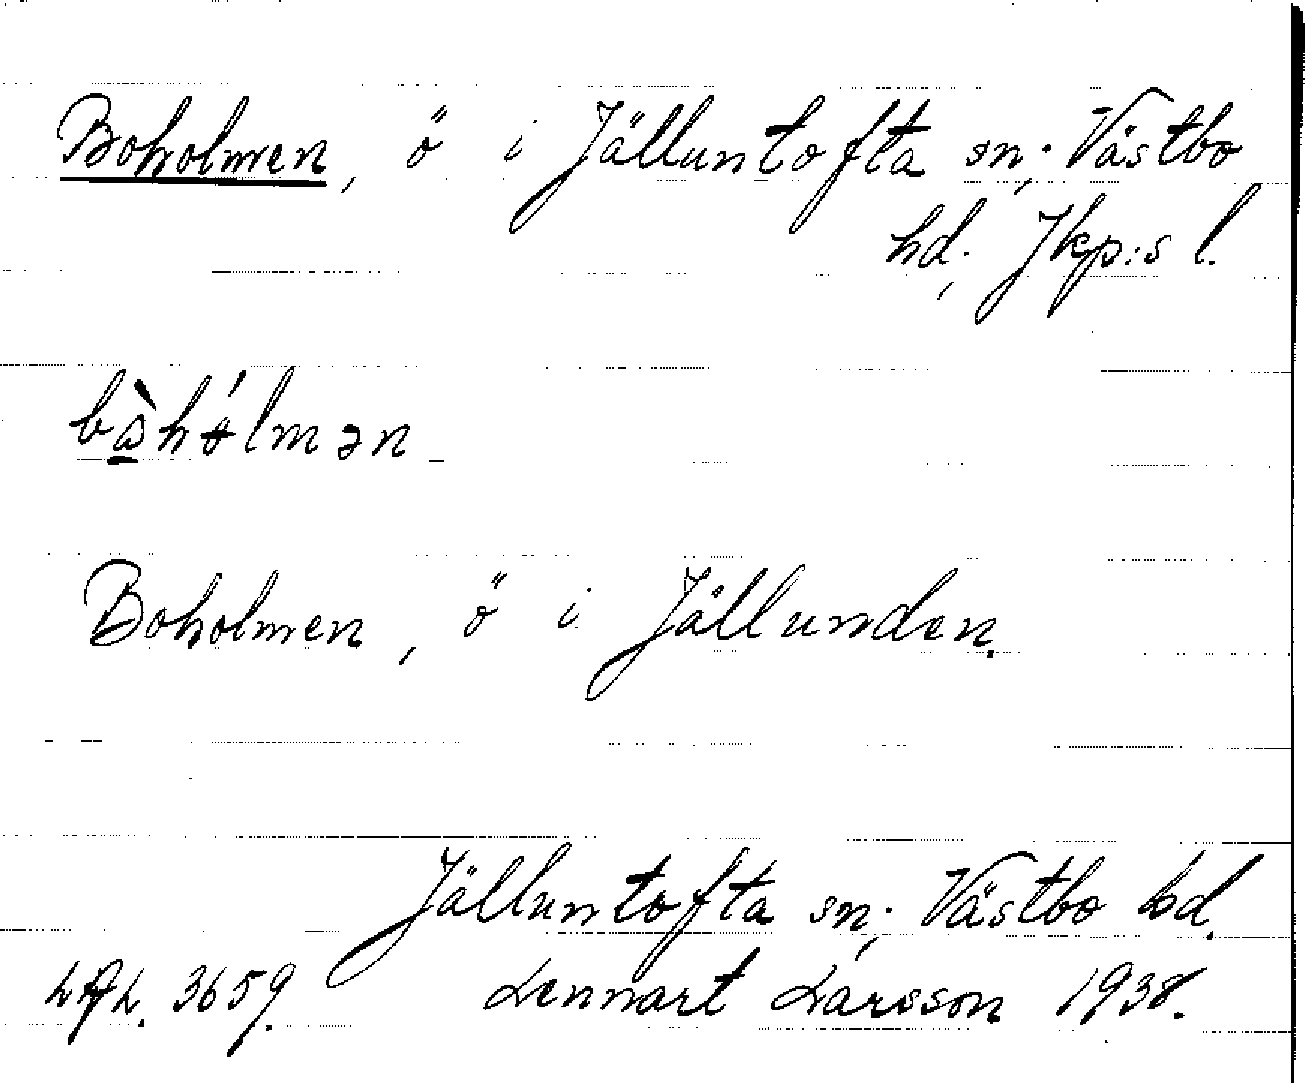 Boholmen, ö i Jälluntofta sn; Västbo
hd; Jkp:s l.
Boholmen, ö i Jällunden.
Jälluntofta sn; Västbo hd.
3659. Lennart Larsson 1938.